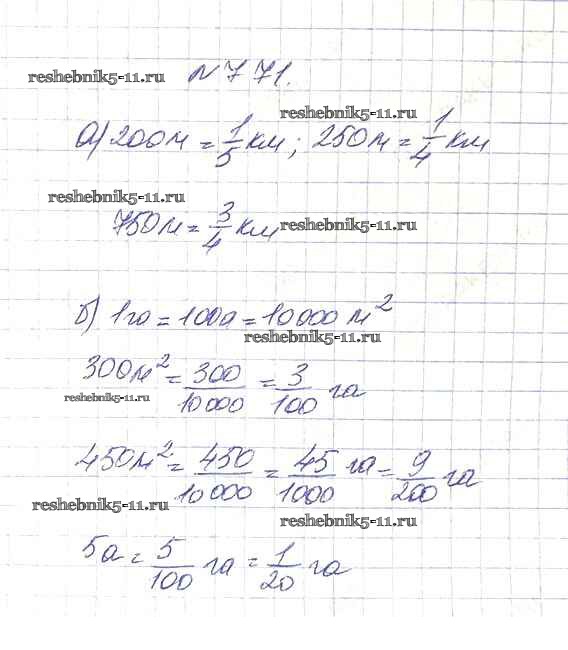 reshebnik5-11.ru № 771.
reshebnik5-11.ru
а) 200м = 1/5 км; 250м = 1/4 км
reshebnik5-11.ru
750м = 3/4 км reshebnik5-11.ru
б) 1га = 100а = 10000 м²
reshebnik5-11.ru
300м² = 300/10000 = 3/100 га
reshebnik5-11.ru
450м² = 450/10000 = 45/1000 га = 9/200 га
reshebnik5-11.ru
reshebnik5-11.ru
5а = 5/100 га = 1/20 га